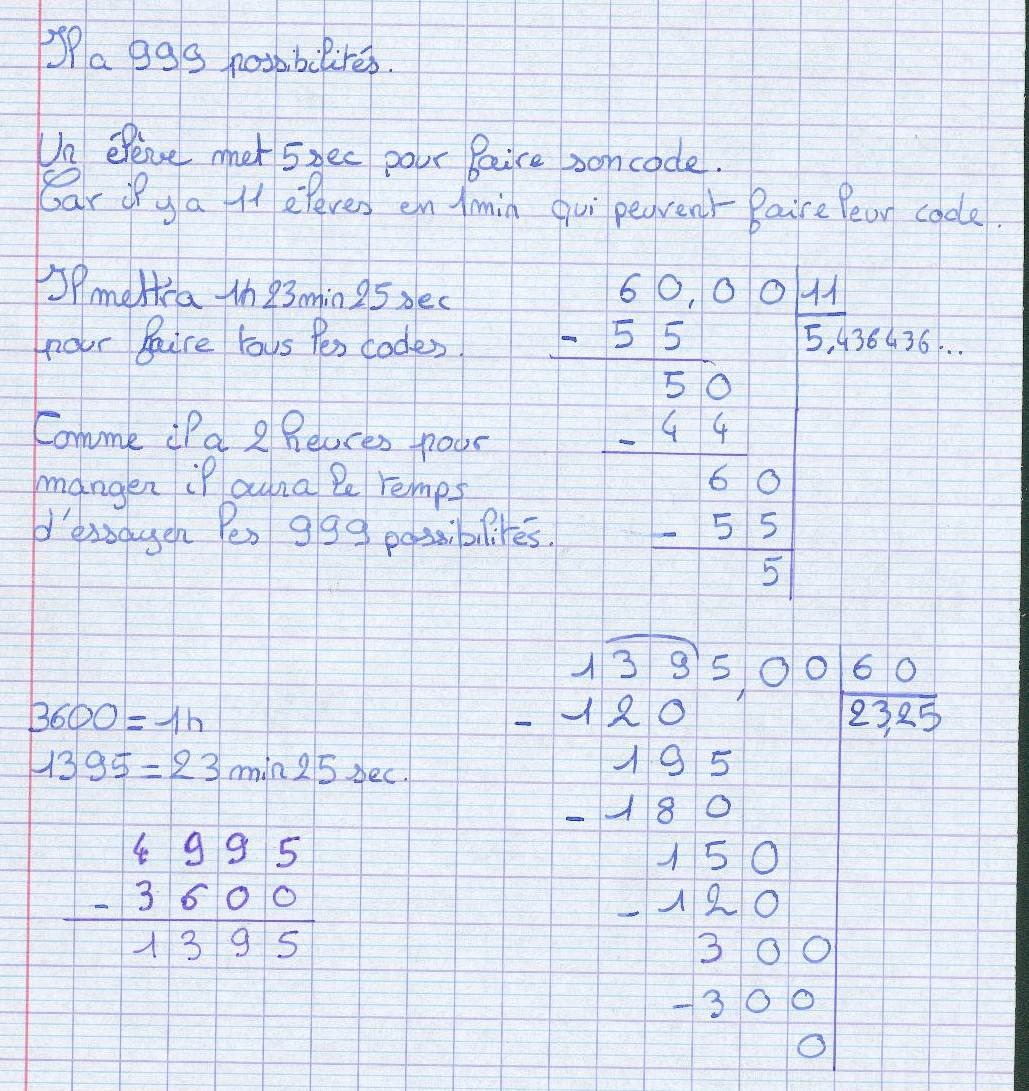 Il a 999 possibilités.
Un élève met 5 sec pour faire son code.
Car il y a 11 élèves en 1 min qui peuvent faire leur code.
Il mettra 1h 23 min 25 sec
pour faire tous les codes.
Comme il a 2 heures pour
manger il aura le temps
d'essayer les 999 possibilités.
60,00 11
- 55 5,436436...
50
- 44
60
- 55
5
3600 = 1h
1395 = 23 min 25 sec.
4995
- 3600
1395
1395,00 60
- 120 23,25
195
- 180
150
- 120
300
- 300
0